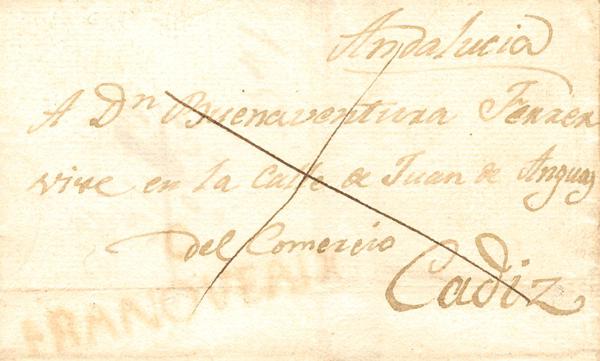 Andalucia
A Dn Buenaventura Ferrer
vive en la Calle de Juan de Anguas
del Comercio
Cadiz